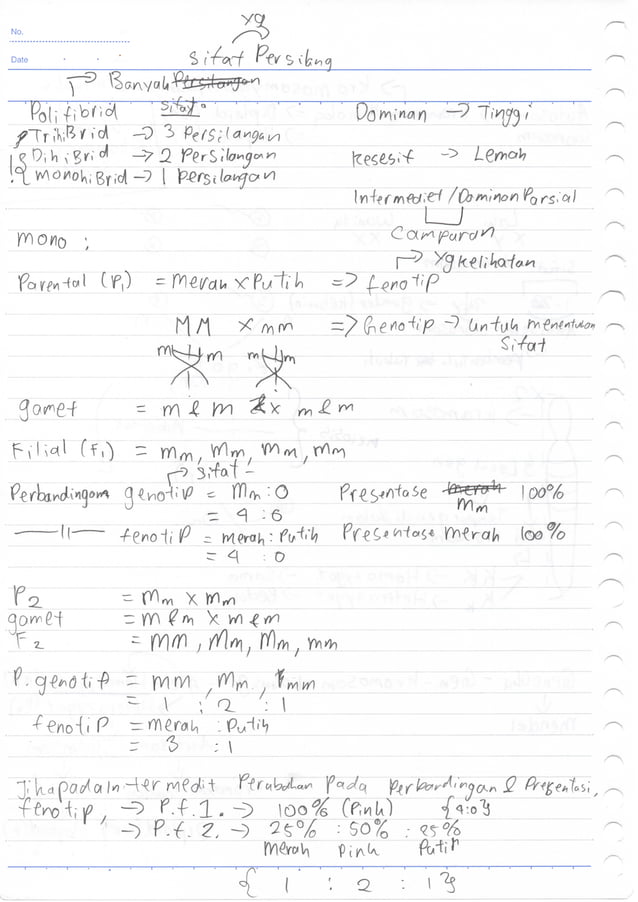 No.
Date
yg
Sifat Persilang
Banyak Persilangan
Polifibrid Sifat. Dominan -> Tinggi
TrihiBrid -> 3 Persilangan
DihiBrid -> 2 Persilangan Resesif -> Lemah
monohiBrid -> 1 Persilangan
Intermediet / Dominan Parsial
Campuran
mono ;
yg kelihatan
Parental (P1) = merah x Putih => fenotip
MM x mm => Genotip -> untuk menentukan
Sifat
m m m m
gamet = m & m x m & m
Filial (F1) = Mm, Mm, Mm, Mm
sifat -
Perbandingam genotip = Mm : 0 Presentase merah 100%
Mm
= 4 : 0
—11— fenotip = merah : Putih Presentase merah 100%
= 4 : 0
P2 = Mm x Mm
gamet = m & m x m & m
F2 = MM, Mm, Mm, mm
P. genotip = MM, Mm, mm
= 1 : 2 : 1
fenotip = merah : Putih
= 3 : 1
Jika pada Intermedit Perubahan Pada Perbandingan & Presentasi,
fenotip, -> P.f. 1. -> 100% (Pink) {4:0}
-> P.f. 2. -> 25% : 50% : 25%
Merah Pink Putih
{ 1 : 2 : 1 }